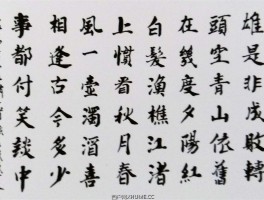 雄是非成敗轉
頭空青山依舊
在幾度夕陽紅
白髮漁樵江渚
上慣看秋月春
風一壺濁酒喜
相逢古今多少
事都付笑談中